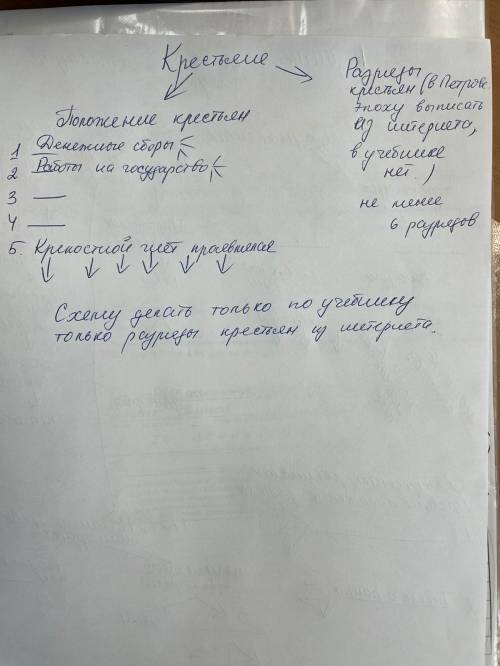 Крестьяне
Положение крестьян
1 Денежные сборы
2 Работы на государство
3 —
4 —
5. Крепостной гнёт проявлялся
Разряды
крестьян (в Петров.
эпоху выписать
из интернета,
в учебнике
нет.)
не менее
6 разрядов
Схему делать только по учебнику
только разряды крестьян из интернета.